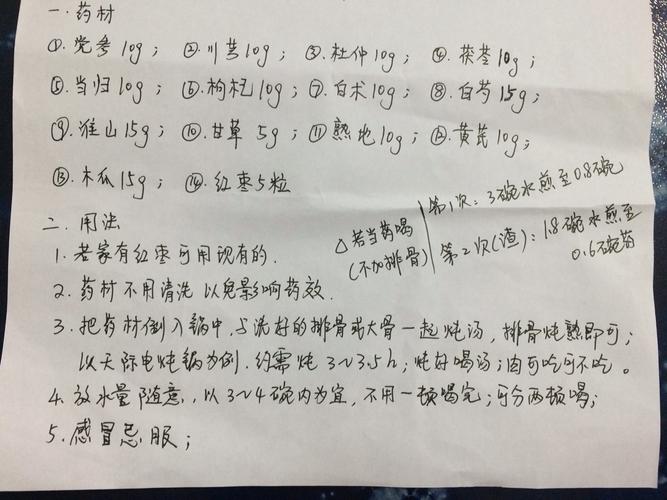 一.药材
①.党参10g；②.川芎10g；③.杜仲10g；④.茯苓10g；
⑤.当归10g；⑥.枸杞10g；⑦.白术10g；⑧.白芍15g；
⑨.淮山15g；⑩.甘草 5g；⑪.熟地10g；⑫.黄芪10g；
⑬.木瓜15g；⑭.红枣5粒
二.用法
1.若家有红枣可用现有的.
△若当药喝
(不加排骨)
第1次：3碗水煎至0.8碗
第2次(渣)：1.8碗水煎至
0.6碗药
2.药材不用清洗以免影响药效.
3.把药材倒入锅中,与洗好的排骨或大骨一起炖汤,排骨炖熟即可；
以天际电炖锅为例.约需炖3~3.5h；炖好喝汤；肉可吃可不吃。
4.放水量随意,以3~4碗内为宜,不用一顿喝完；可分两顿喝；
5.感冒忌服；